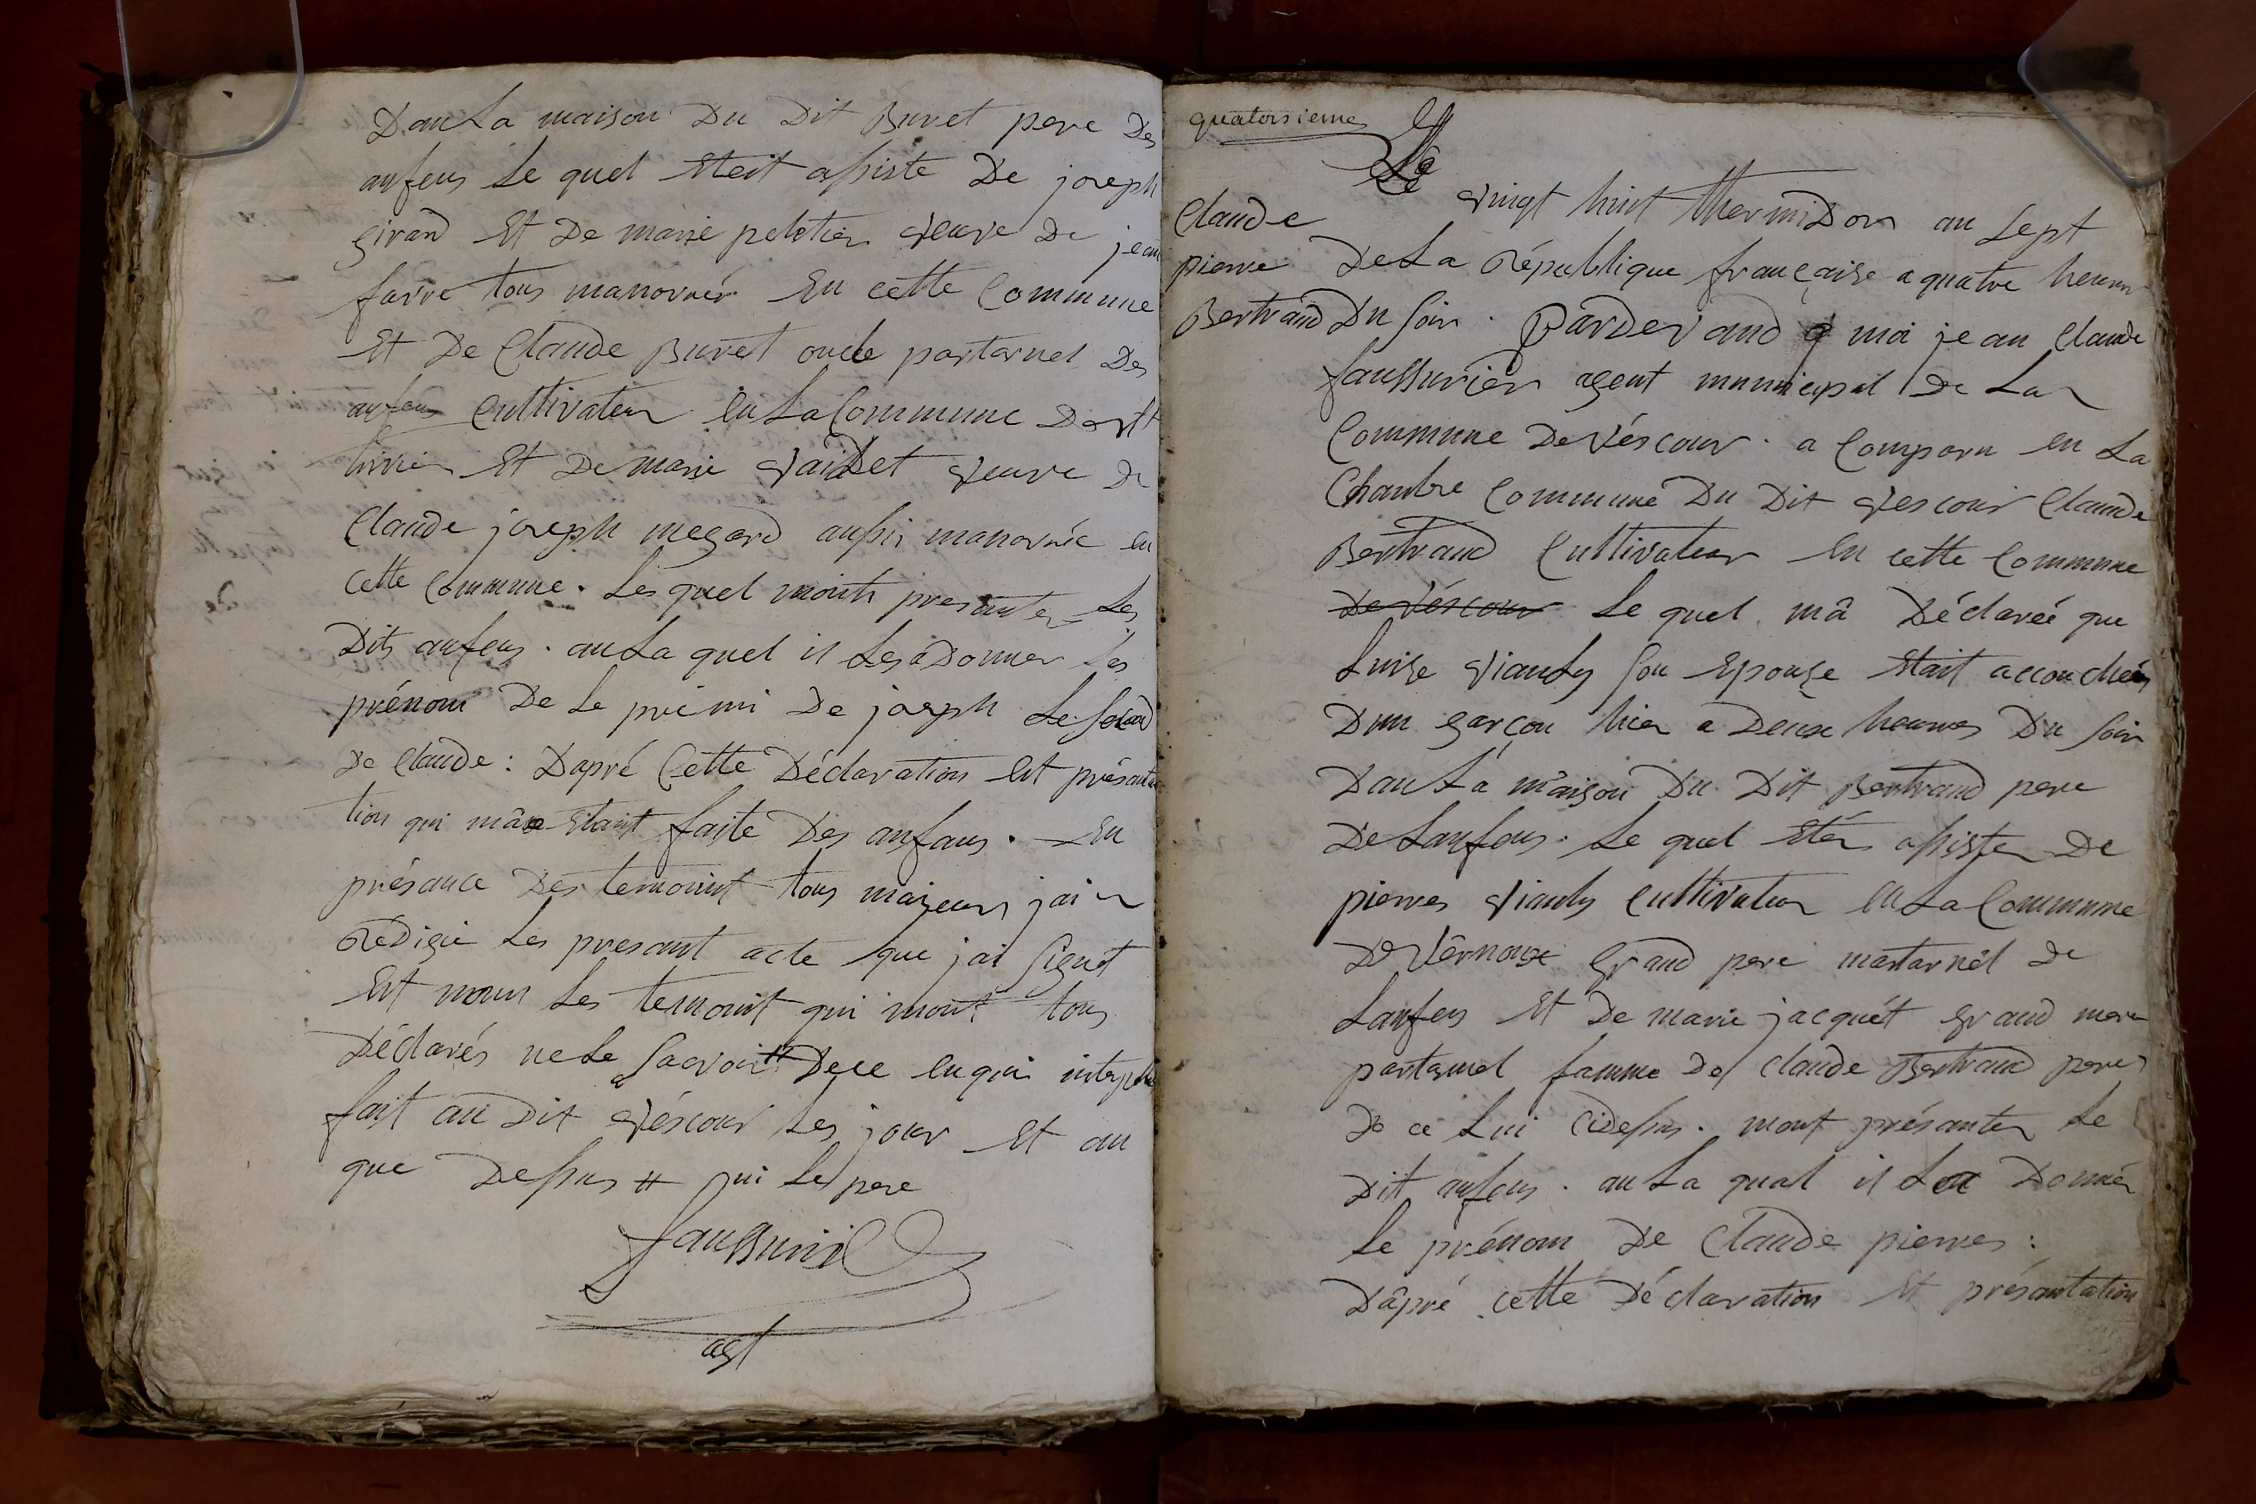 Dan La maison Du Dit Buvet pere Des
anfens Le quel Eteit assiste De joseph
girand Et De marie peletier veuve De jean
favre tous manovrier En cette Commune
Et De Claude Buvet oncle partarnel Des
anfens Cultivateur en La Commune Dast
trivier Et De marie vaidet veuve De
Claude joseph megard aussi manovrié en
cette Commune. Les quel monts presenter Les
Dits anfens. au La quel il Les a Donner Les
prénom De Le premi De joseph Le segond
De Claude: Dapré Cette Déclaration Et présanta
tion qui mâ Etant faite Des anfans. En
présance Des temoint tous majeur jai
Rédigié Les presant acte que jai Signet
Et nonn Les temoint qui mont tous
Déclarés ne Le Saavoir # De ce enquie interpelé
fait au Dit véscour Les jour Et an
que Dessus # qui Le pere
faussurié
agt
quatorsieme
Claude
pierre
Bertrand
Le vingt huit thermiDor an Sept
De La République française a quatre heures
Du soir. Pardevand moi jean Claude
faussurier agent municipal De La
Commune De véscour. a Comparu en La
Chambre Commune Du Dit vescour Claude
Bertrand Cultivateur En cette Commune
De véscour Le quel mâ Déclareé que
Luise viandy son Epouse Etait accouchée
Dun garçon hier a Deux heures Du soir
Dan La maison Du Dit Bertrand pere
De Lanfens. Le quel Eté assister De
pierres viandy Cultivateur en La Commune
De vernoux grand pere martarnel de
Lanfens Et De marie jacquét grand mere
partarnel famme De Claude Bertrand pere
De ce Lui Cidessus. mont présanter Le
Dit anfens. au La qual il La Donner
Le prénom De Claude pierres:
Dâpré cette Déclaration Et présantation